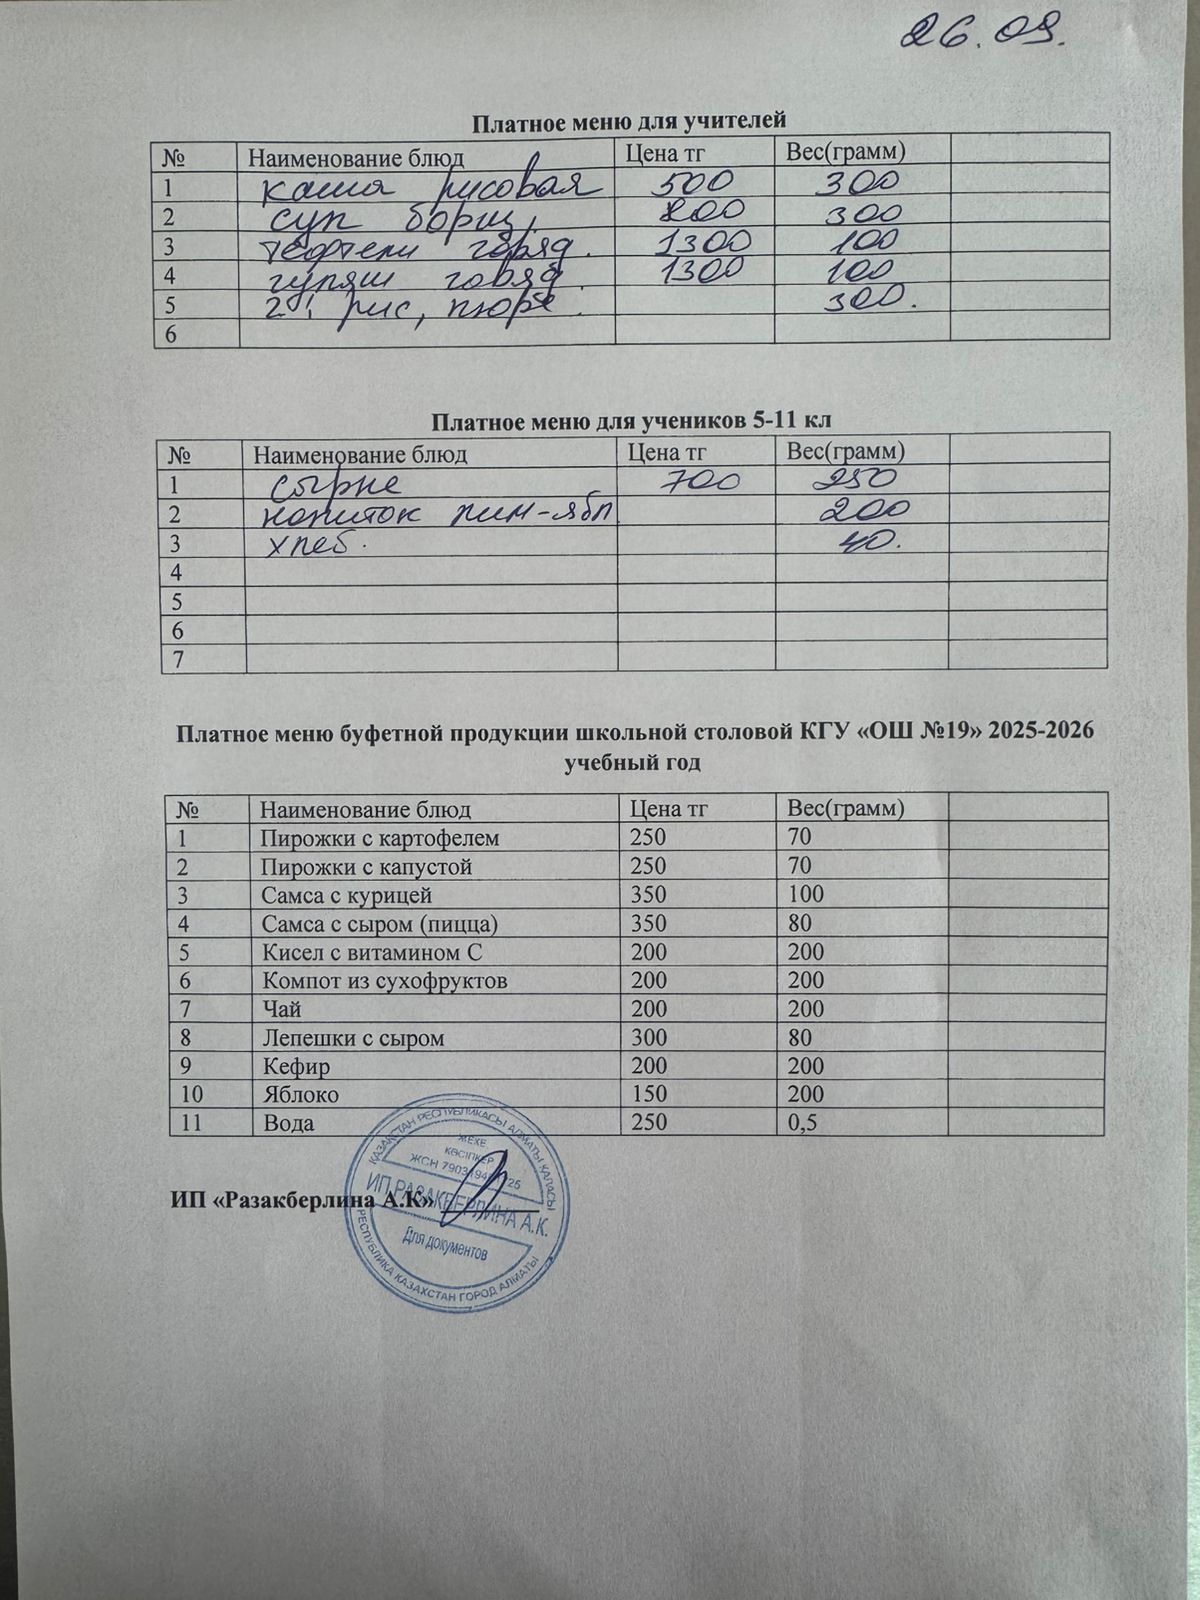 26.09.
Платное меню для учителей
№ Наименование блюд Цена тг Вес(грамм)
1 каша рисовая 500 300
2 суп борщ. 800 300
3 тефтели говяд. 1300 100
4 гуляш говяд. 1300 100
5 г: рис, пюре. 300.
6
Платное меню для учеников 5-11 кл
№ Наименование блюд Цена тг Вес(грамм)
1 сырне 700 250
2 напиток лим-ябл 200
3 хлеб. 40.
4
5
6
7
Платное меню буфетной продукции школьной столовой КГУ «ОШ №19» 2025-2026
учебный год
№ Наименование блюд Цена тг Вес(грамм)
1 Пирожки с картофелем 250 70
2 Пирожки с капустой 250 70
3 Самса с курицей 350 100
4 Самса с сыром (пицца) 350 80
5 Кисел с витамином С 200 200
6 Компот из сухофруктов 200 200
7 Чай 200 200
8 Лепешки с сыром 300 80
9 Кефир 200 200
10 Яблоко 150 200
11 Вода 250 0,5
ИП «Разакберлина А.К»
ҚАЗАҚСТАН РЕСПУБЛИКАСЫ АЛМАТЫ ҚАЛАСЫ
ЖЕКЕ
КӘСІПКЕР
ЖСН
ИП РАЗАКБЕРЛИНА А.К.
Для документов
РЕСПУБЛИКА КАЗАХСТАН ГОРОД АЛМАТЫ